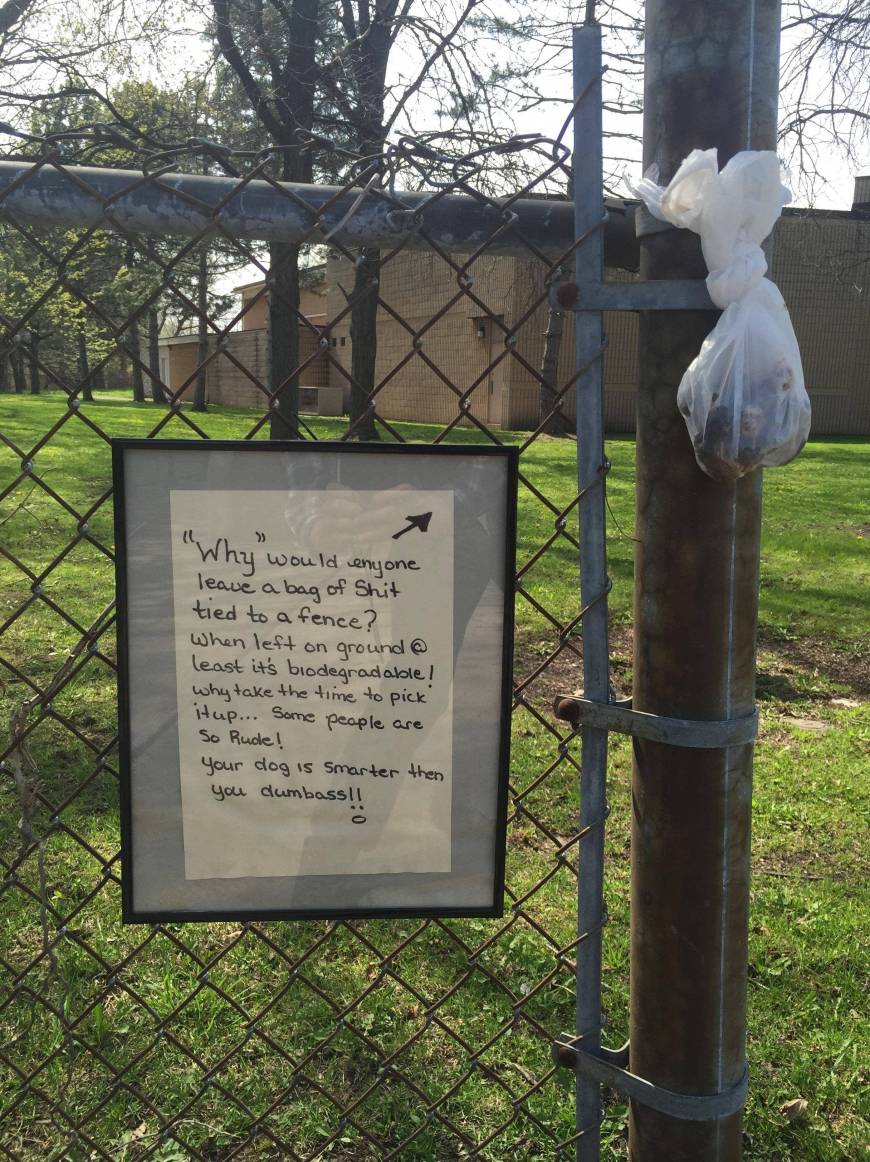 "Why" would enyone
leave a bag of Shit
tied to a fence?
When left on ground @
least it's biodegradable!
why take the time to pick
it up... Some people are
So Rude!
Your dog is smarter then
you dumbass!!